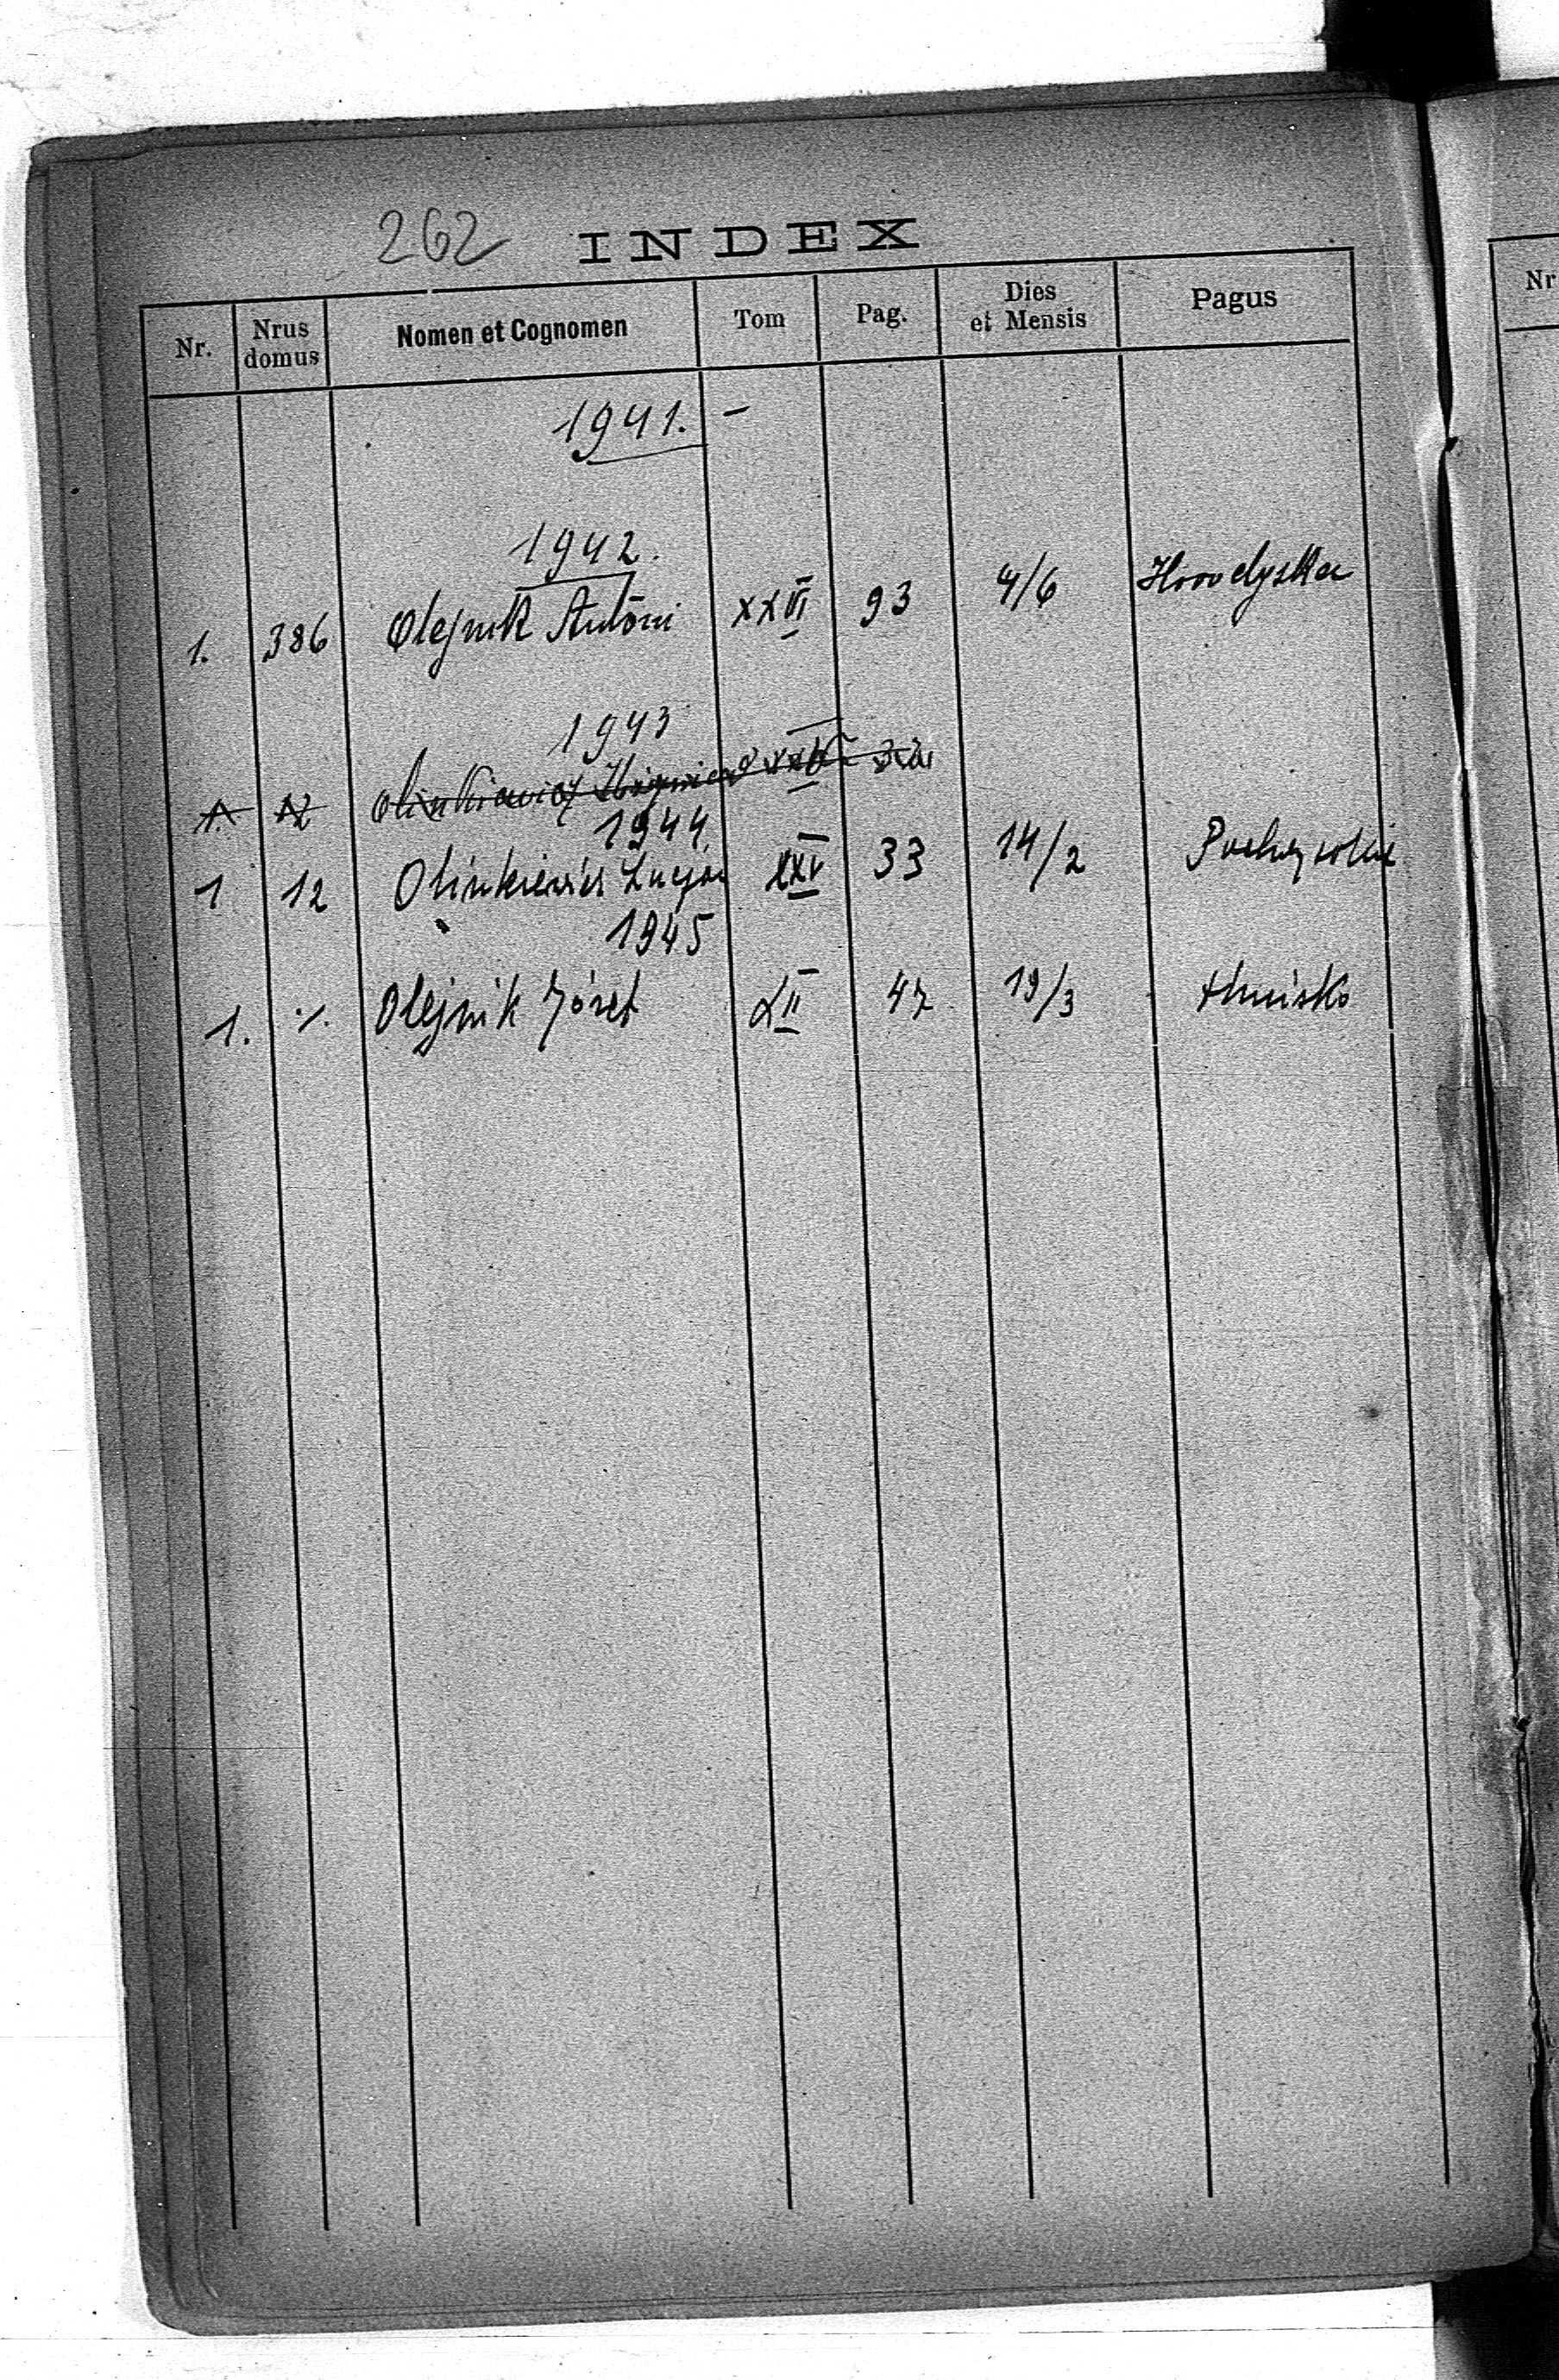 262 INDEX
Nr. Nrus domus Nomen et Cognomen Tom Pag. Dies et Mensis Pagus
1941. –
1942.
1. 386 Olejnik Antoni XXVI 93 4/6
1943
1. 12 Olinkiewicz Zbigniew
1944
1 12 Olinkiewicz XXV 33 14/2
1945
1. ·/. Olejnik Józef 47 19/3
Nr